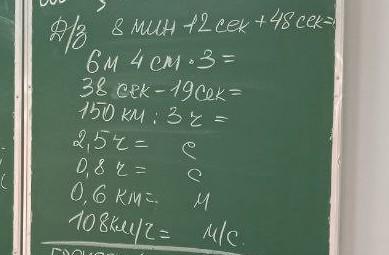 Д/з 8 мин 12 сек + 48 сек =
6м 4 см · 3 =
38 сек - 19 сек =
150 км : 3 ч =
2,5 ч = с
0,8 ч = с
0,6 км = м
108 км/ч = м/с